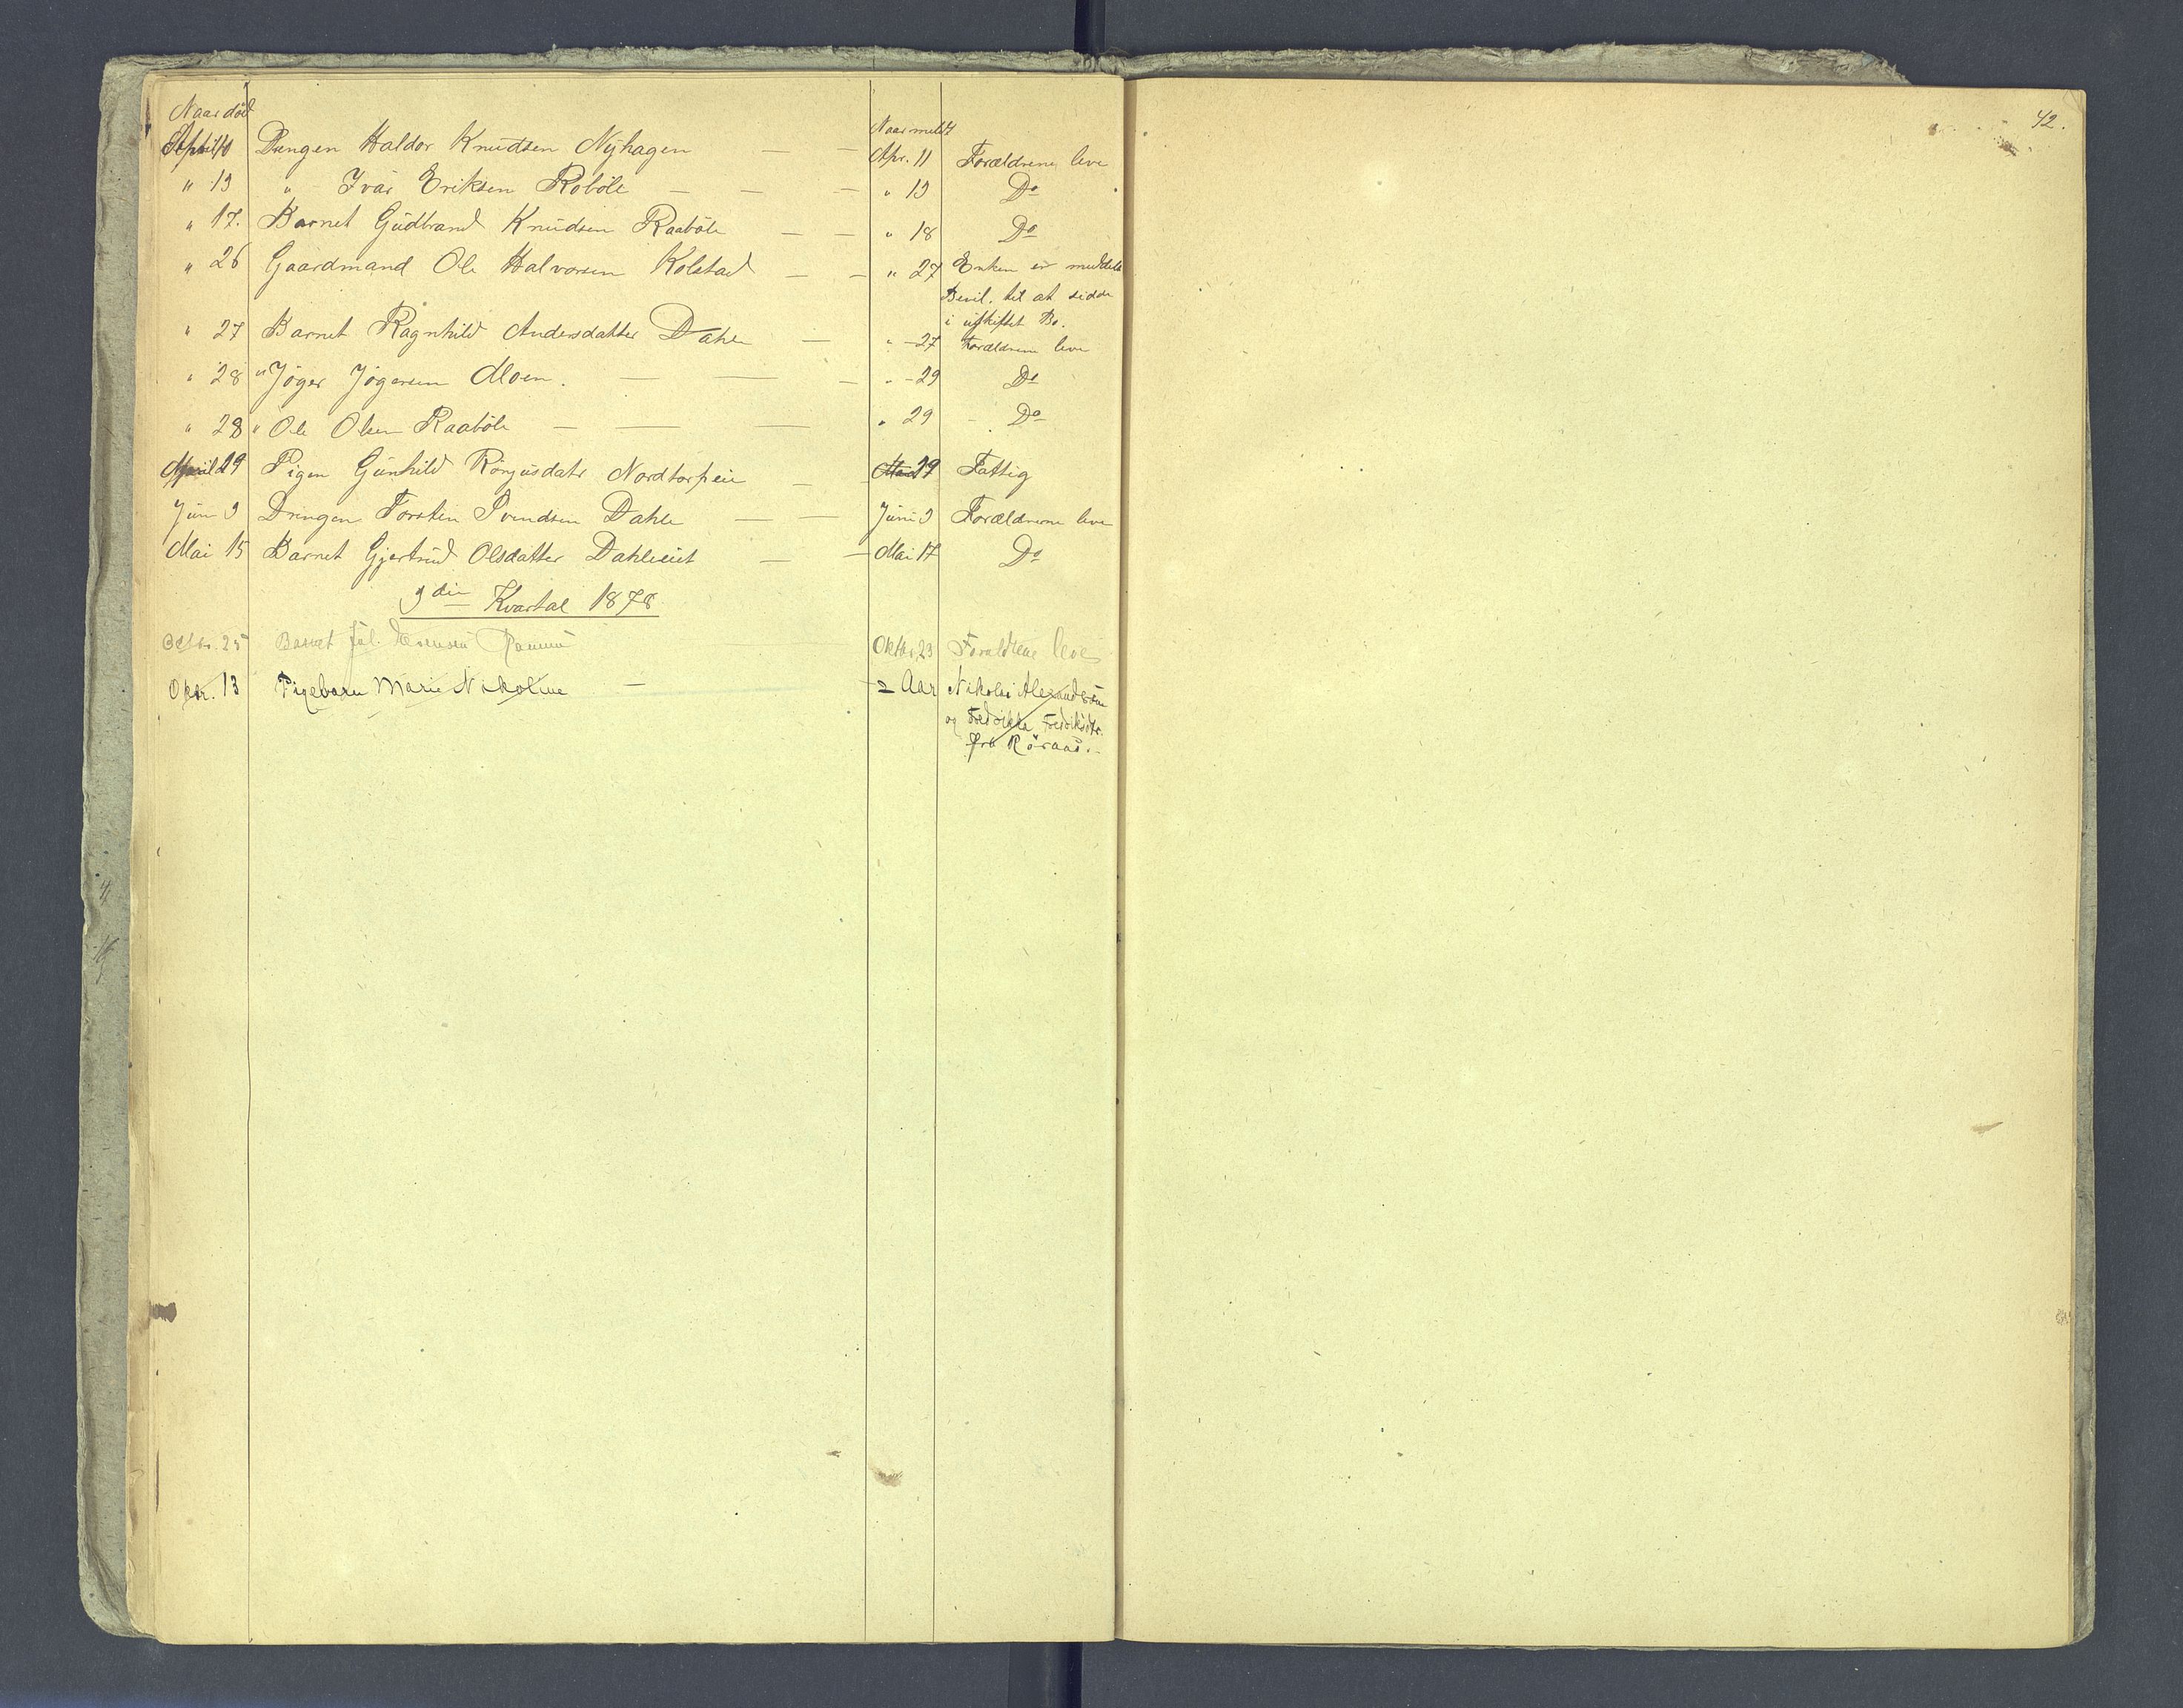 42.
Naar död
Naar meldt
April 10 Drengen Haldor Knudsen Nyhagen — — Apr. 11 Forældrene leve
" 13 " Ivar Eriksen Roböle — — — " 13 Do
" 17. Barnet Gudbrand Knudsen Raaböle — — " 18 Do
" 26 Gaardmand Ole Halvorsen Kolstad — — " 27 Enken er meddelt
Bevil. til at sidde
i uskiftet Bo.
" 27 Barnet Ragnhild Andersdatter Dahle — " - 27 Forældrene leve
" 28 " Jöger Jögersen Moen. — — — " - 29 Do
" 28 " Ole Olsen Raaböle — — — " 29 - Do
April 29 Pigen Gunhild Nordtorpeie — 29 Fattig
Juni 3 Drengen Torsten Svendsen Dahle — — Juni 3 Forældrerne leve
Mai 15 Barnet Gjertrud Olsdatter Dahleeiet — — Mai 17 Do
3die Kvartal 1878
25 Barnet Oktbr. 23 Forældrene leve
Oktr. 13 Pigebarn Marie Nikoline — - 2 Aar Nikolai Alexandersen
og Fredrikke Fredriksdtr.
fra Röraas.-